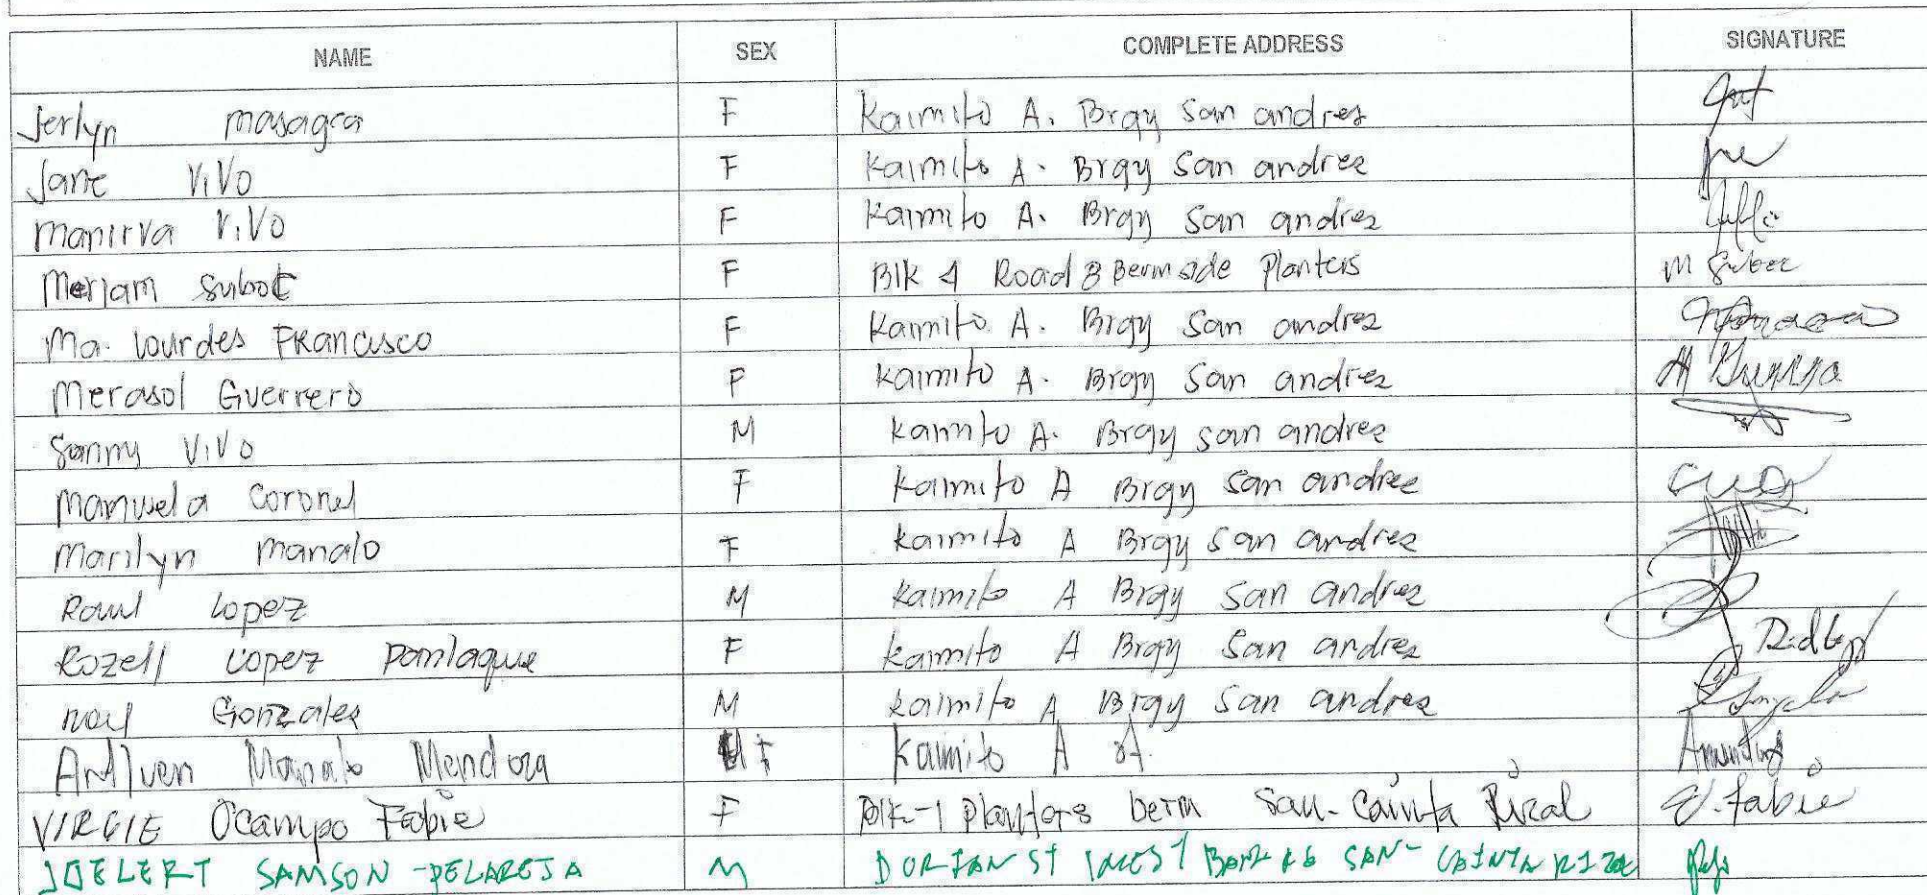 NAME SEX COMPLETE ADDRESS SIGNATURE
Jerlyn masagca F Kaimito A. Brgy San andres
Jane ViVo F Kaimito A. Brgy San andres
Manirva ViVo F Kaimito A. Brgy San andres
Merjam Subot F Blk 4 Road 3 Bermode Planters
Ma. Lourdes Francisco F Kaimito A. Brgy San andres
Merasol Guerrero F Kaimito A. Brgy San andres
Sanny ViVo M Kaimito A. Brgy San andres
Manuela Coronel F Kaimito A Brgy San andres
Marilyn Manalo F Kaimito A Brgy San andres
Raul Lopez M Kaimito A Brgy San andres
Rozell Lopez Panlaque F Kaimito A Brgy San andres
noel Gonzales M Kaimito A Brgy San andres
Manalo Mendoza F Kaimito A
VIRGIE Ocampo Fabie F Blk-1 planters berm San- Cainta Rizal V. Fabie
JOELERT SAMSON -PELAREJA M ST SAN- CAINTA